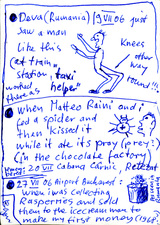 Deva (Rumania) 19 VII 06 just
Saw a man
like this
(at train
station, "taxi
worked there as helper"
Knees
other
way
round!!!
When Matteo Raini and i
fed a spider and
then kissed it
while it ate its pray (prey?)
(in the chocolate factory)
20 VII Cabana Gentiana, Retezat
27 VII 06 Airport Bucharest:
when i was collecting
Rasperries and sold
them to the icecream man to
make my first money (1968)